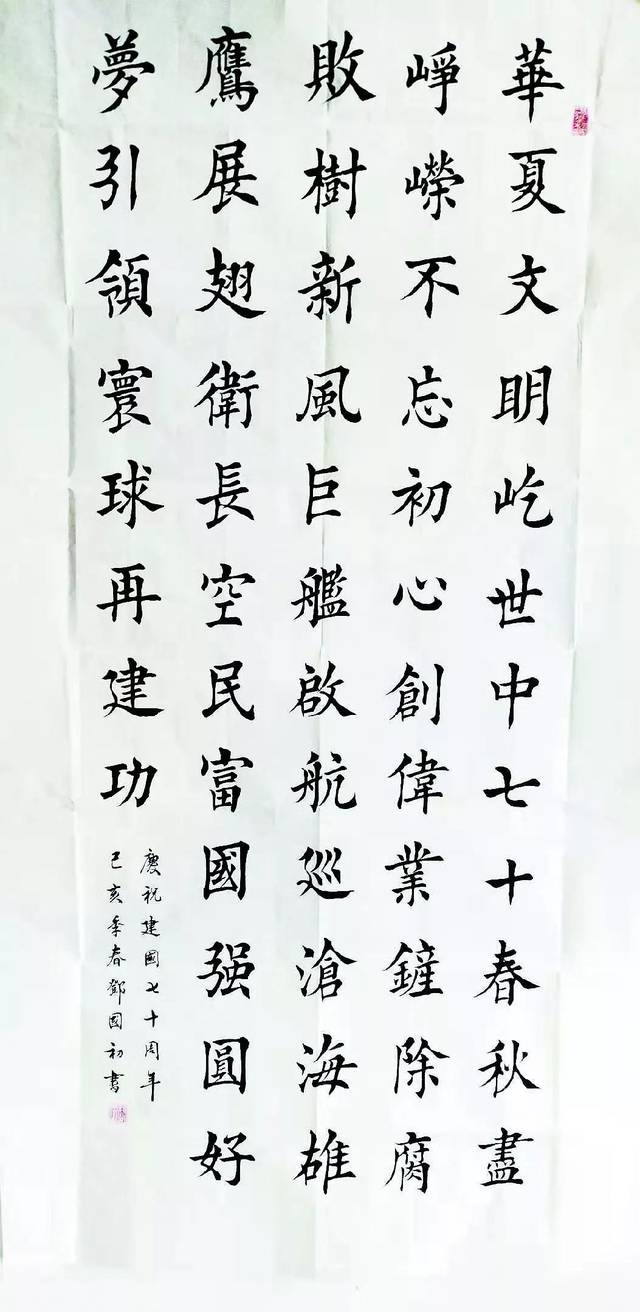 華夏文明屹世中七十春秋盡
崢嶸不忘初心創偉業鏟除腐
敗樹新風巨艦啟航巡滄海雄
鷹展翅衛長空民富國强圓好
夢引領寰球再建功
慶祝建國七十周年
己亥季春鄧國初書